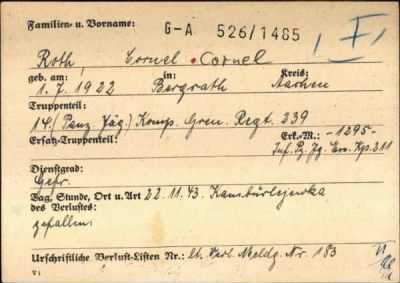 Familien- u. Vorname: G-A 526/1485
Roth, Cornel • Cornel I
geb. am: in: Kreis:
1. 7. 1922 Bergrath Aachen
Truppenteil:
14. (Panz. Jäg.) Komp. Gren. Regt. 239
Ersatz-Truppenteil: Erk.-M.: -1295-
Inf. Pz. Jg. Ers. Kp. 211
Dienstgrad:
Gefr.
Tag, Stunde, Ort u. Art 22. 11. 43.
des Verlustes:
gefallen.
Urschriftliche Verlust-Listen Nr.: lt. Verl. Meldg. Nr. 183
V 1